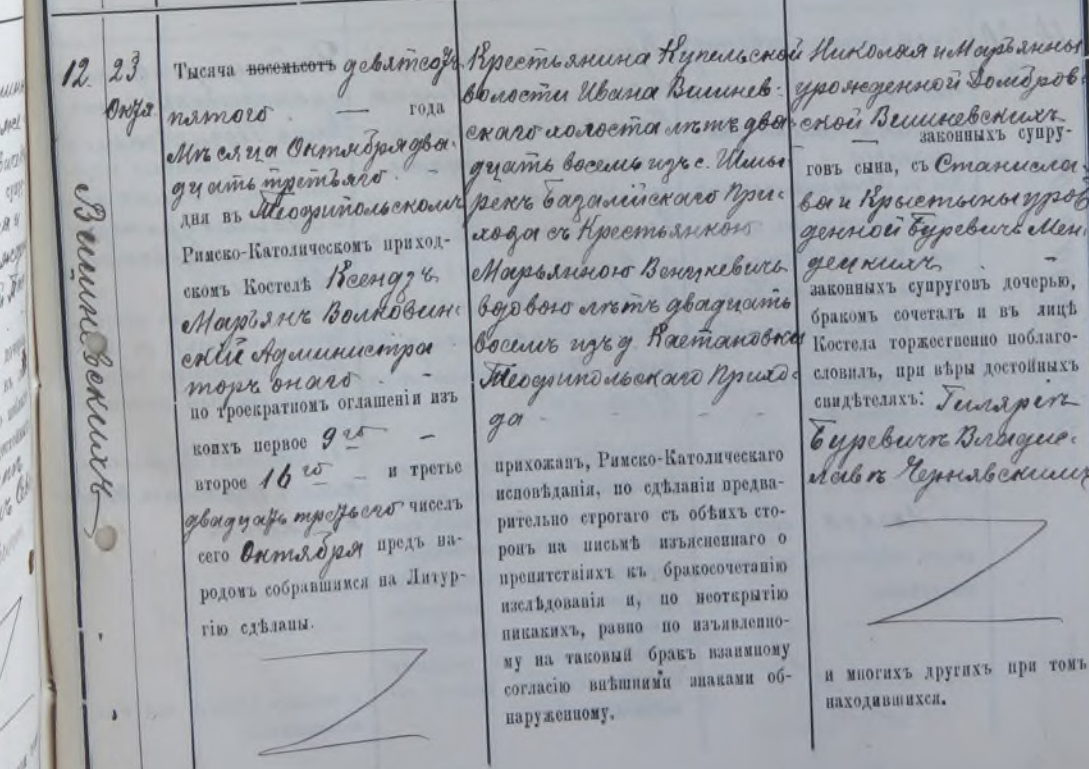 12.
23
Октя
Вишневскихъ
Тысяча восемьсотъ девятсотъ
пятого — года
Мѣсяца Октября два-
дцать третьяго
дня въ Теофипольскомъ
Римско-Католическомъ приход-
скомъ Костелѣ Ксендзъ
Марьянъ Волковин-
скій Администра
торъ онаго
по троекратномъ оглашеніи изъ
коихъ первое 9го –
второе 16го – и третье
двадцать третьего чиселъ
сего Октября предъ на-
родомъ собравшимся на Литур-
гію сдѣланы.
Крестьянина Купельской
волости Ивана Вишнев-
скаго холоста лѣтъ два-
дцать восемь изъ с. Шмы-
рекъ Базалійскаго При-
хода съ Крестьянкою
Марьянною Венцкевичъ
вдовою лѣтъ двадцать
восемь изъ д. Каетановки
Теофипольскаго Прихо-
да
прихожанъ, Римско-Католическаго
исповѣданія, по сдѣланіи предва-
рительно строгаго съ обѣихъ сто-
ронъ на письмѣ изъясненнаго о
препятствіяхъ къ бракосочетанію
изслѣдованія и, по неоткрытію
никакихъ, равно по изъявленно-
му на таковый бракъ взаимному
согласію внѣшними знаками об-
наруженному,
Николая и Марьянны
урожденной Домбров
ской Вишневскихъ
— законныхъ супру-
говъ сына, съ Станисла-
ва и Крыстыны уро
жденной Буревичъ Мен-
децкихъ
законныхъ супруговъ дочерью,
бракомъ сочеталъ и въ лицѣ
Костела торжественно поблаго-
словилъ, при вѣры достойныхъ
свидѣтеляхъ: Гиляріѣ
Буревичъ Владис-
лавѣ Чернявскимъ
и многихъ другихъ при томъ
находившихся.